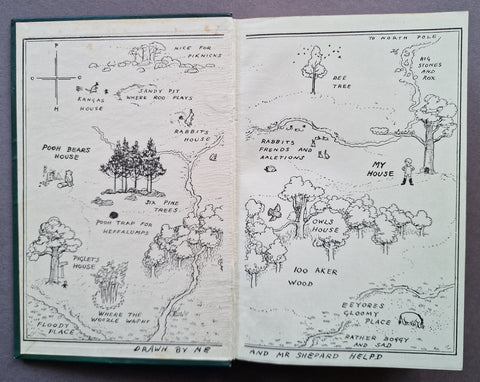 NICE FOR
PIKNICKS
P
O
H
KANGAS
HOUSE
SANDY PIT
WHERE ROO PLAYS
RABBITS
HOUSE
POOH BEARS
HOUSE
SIX PINE
TREES
POOH TRAP FOR
HEFFALUMPS
PIGLETS
HOUSE
WHERE THE
WOOZLE WASNT
FLOODY
PLACE
DRAWN BY ME
TO NORTH POLE
BIG
STONES
AND
ROX
BEE
TREE
RABBITS
FRENDS AND
RALETIONS
MY
HOUSE
OWLS
HOUSE
100 AKER
WOOD
EEYORES
GLOOMY
PLACE
RATHER BOGGY
AND SAD
AND MR SHEPARD HELPD